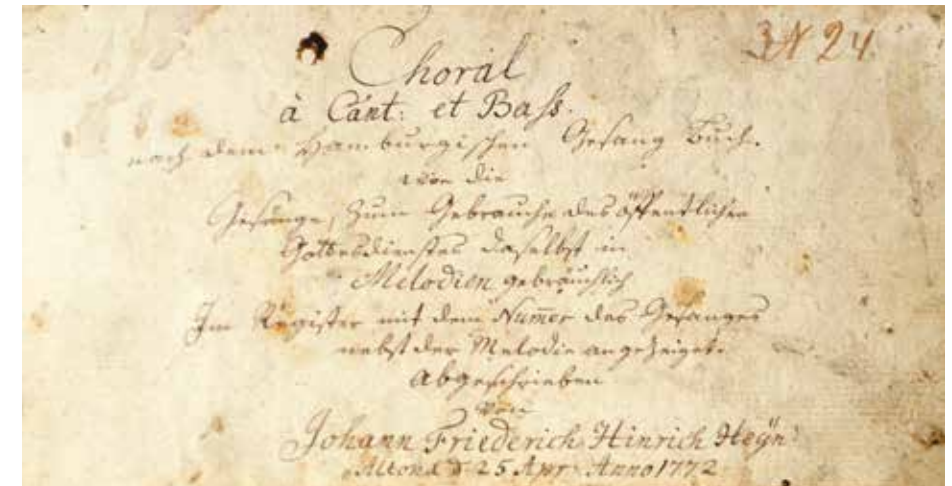 3 N 24
Choral
à Cant: et Bass.
nach dem Hamburgischen Gesang Buch.
wo die
Gesänge, zum Gebrauche des öffentlichen
Gottesdienstes daselbst in
Melodien gebräuchlich
Im Register mit dem Numer des Gesanges
nebst der Melodie angezeiget.
Abgeschrieben
von
Johann Friederich Hinrich Heÿn
Altona d 25 Apr: Anno 1772